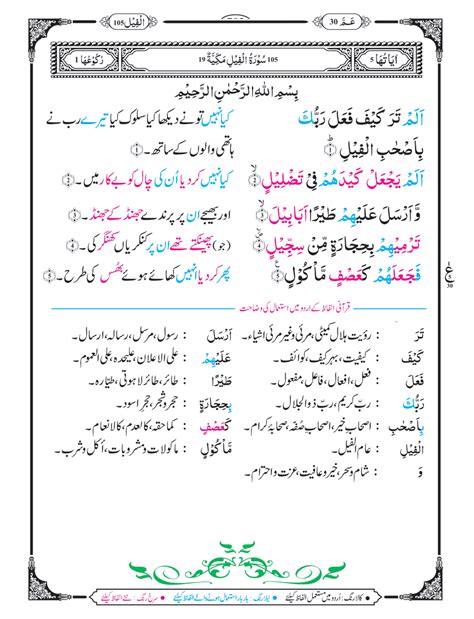 اَلْفِيْل 105
عَمَّ 30
اٰيَاتُهَا 5
105 سُوْرَةُ الْفِيْلِ مَكِّيَّةٌ 19
رُكُوْعُهَا 1
بِسْمِ اللّٰهِ الرَّحْمٰنِ الرَّحِيْمِ
اَلَمْ تَرَ كَيْفَ فَعَلَ رَبُّكَ
کیا نہیں تو نے دیکھا کیا سلوک کیا تیرے رب نے
بِاَصْحٰبِ الْفِيْلِ ﴿۱﴾
ہاتھی والوں کے ساتھ۔ ﴿۱﴾
اَلَمْ يَجْعَلْ كَيْدَهُمْ فِيْ تَضْلِيْلٍ ﴿۲﴾
کیا نہیں کر دیا اُن کی چال کو بے کار میں۔ ﴿۲﴾
وَّاَرْسَلَ عَلَيْهِمْ طَيْرًا اَبَابِيْلَ ﴿۳﴾
اور بھیجے ان پر پرندے جھنڈ کے جھنڈ۔ ﴿۳﴾
تَرْمِيْهِمْ بِحِجَارَةٍ مِّنْ سِجِّيْلٍ ﴿۴﴾
(جو) پھینکتے تھے ان پر کنکریاں کھنگر کی۔ ﴿۴﴾
فَجَعَلَهُمْ كَعَصْفٍ مَّاْكُوْلٍ ﴿۵﴾
پھر کر دیا انہیں کھائے ہوئے بھُس کی طرح۔ ﴿۵﴾
ع
30
قرآنی الفاظ کے اردو میں استعمال کی وضاحت
تَرَ : رؤیت ہلال کمیٹی، مرئی و غیر مرئی اشیاء۔
اَرْسَلَ : رسول، مرسل، رسالہ، ارسال۔
كَيْفَ : کیفیت، بہر کیف، کوائف۔
عَلَيْهِمْ : علی الاعلان، علیحدہ، علی العموم۔
فَعَلَ : فعل، افعال، فاعل، مفعول۔
طَيْرًا : طائر، طائر لاہوتی، طیّارہ۔
رَبُّكَ : ربّ کریم، ربّ ذوالجلال۔
بِحِجَارَةٍ : حجر و شجر، حجر اسود۔
بِاَصْحٰبِ : اصحاب خیر، اصحاب صُفہ، صحابہ کرام۔
كَعَصْفٍ : کما حقہ، کالعدم، کالانعام۔
الْفِيْلِ : عام الفیل۔
مَّاْكُوْلٍ : ماکولات و مشروبات، اکل و شرب۔
وَ : شام و سحر، خیر و عافیت، عزت و احترام۔
کالا رنگ : اُردو میں مستعمل الفاظ کیلئے
نیلا رنگ : بار بار استعمال ہونے والے الفاظ کیلئے
سرخ رنگ : نئے الفاظ کیلئے